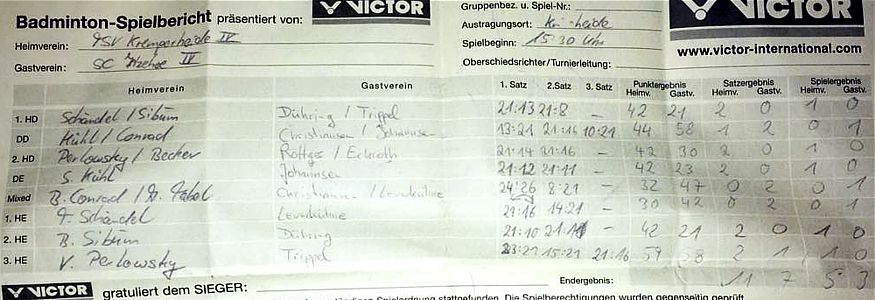 Badminton-Spielbericht präsentiert von: VICTOR
Gruppenbez. u. Spiel-Nr.:
VICTOR
Heimverein: TSV Kremperheide IV
Austragungsort: Kr'heide
Gastverein: SC Itzehoe IV
Spielbeginn: 15.30 Uhr
www.victor-international.com
Oberschiedsrichter/Turnierleitung:
Heimverein Gastverein 1. Satz 2. Satz 3. Satz Punktergebnis Heimv. Gastv. Satzergebnis Heimv. Gastv. Spielergebnis Heimv. Gastv.
1. HD Schändel / Sibum Dühring / Trippel 21:13 21:8 – 42 21 2 0 1 0
DD Kühl / Conrad Christiansen / Johannsen 13:21 21:16 10:21 44 58 1 2 0 1
2. HD Perlowsky / Becker Röttges / Eckroth 21:14 21:16 – 42 30 2 0 1 0
DE S. Kühl Johannsen 21:12 21:11 – 42 23 2 0 1 0
Mixed B. Conrad / Christiansen / Leverkühne 24:26 8:21 – 32 47 0 2 0 1
1. HE T. Schändel Leverkühne 21:16 – 30 42 0 2 0 1
2. HE B. Sibum Dühring 21:10 – 42 21 2 0 1 0
3. HE V. Perlowsky Trippel 23:21 15:21 21:16 59 58 2 1 1 0
Endergebnis: 11 7 5 3
VICTOR gratuliert dem SIEGER:
Spielordnung stattgefunden. Die Spielberechtigungen wurden gegenseitig geprüft